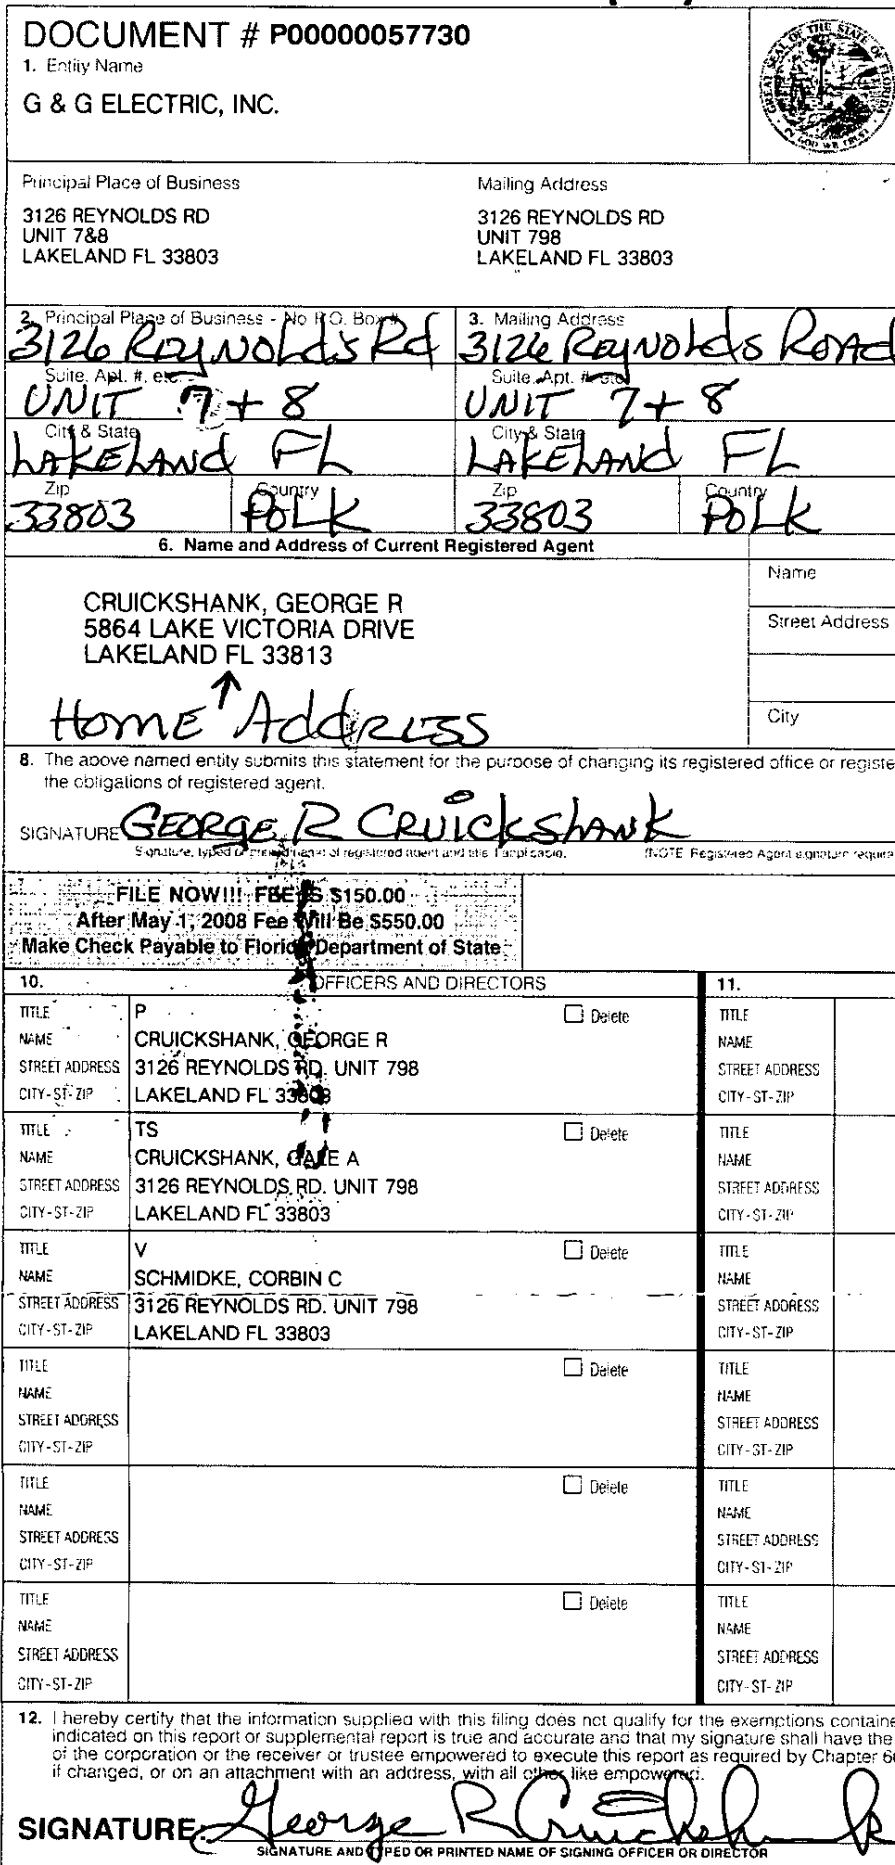 DOCUMENT # P00000057730
1. Entity Name
G & G ELECTRIC, INC.
GREAT SEAL OF THE STATE OF FLORIDA
IN GOD WE TRUST
Principal Place of Business
3126 REYNOLDS RD
UNIT 7&8
LAKELAND FL 33803
Mailing Address
3126 REYNOLDS RD
UNIT 798
LAKELAND FL 33803
2. Principal Place of Business - No P.O. Box #
3126 REYNOLDS Rd
Suite, Apt. #, etc.
UNIT 7 + 8
City & State
LAKELAND FL
Zip
33803
Country
POLK
3. Mailing Address
3126 REYNOLDS ROAD
Suite, Apt. #, etc.
UNIT 7 + 8
City & State
LAKELAND FL
Zip
33803
Country
POLK
6. Name and Address of Current Registered Agent
CRUICKSHANK, GEORGE R
5864 LAKE VICTORIA DRIVE
LAKELAND FL 33813
HOME ADDRESS
Name
Street Address
City
8. The above named entity submits this statement for the purpose of changing its registered office or registe
the obligations of registered agent.
SIGNATURE GEORGE R CRUICKSHANK
Signature, typed or printed name of registered agent and title if applicable. (NOTE: Registered Agent signature require
FILE NOW!!! FEE IS $150.00
After May 1, 2008 Fee Will Be $550.00
Make Check Payable to Florida Department of State
10. OFFICERS AND DIRECTORS
TITLE P Delete
NAME CRUICKSHANK, GEORGE R
STREET ADDRESS 3126 REYNOLDS RD. UNIT 798
CITY-ST-ZIP LAKELAND FL 33803
TITLE TS Delete
NAME CRUICKSHANK, GALE A
STREET ADDRESS 3126 REYNOLDS RD. UNIT 798
CITY-ST-ZIP LAKELAND FL 33803
TITLE V Delete
NAME SCHMIDKE, CORBIN C
STREET ADDRESS 3126 REYNOLDS RD. UNIT 798
CITY-ST-ZIP LAKELAND FL 33803
TITLE Delete
NAME
STREET ADDRESS
CITY-ST-ZIP
TITLE Delete
NAME
STREET ADDRESS
CITY-ST-ZIP
TITLE Delete
NAME
STREET ADDRESS
CITY-ST-ZIP
11.
TITLE
NAME
STREET ADDRESS
CITY-ST-ZIP
TITLE
NAME
STREET ADDRESS
CITY-ST-ZIP
TITLE
NAME
STREET ADDRESS
CITY-ST-ZIP
TITLE
NAME
STREET ADDRESS
CITY-ST-ZIP
TITLE
NAME
STREET ADDRESS
CITY-ST-ZIP
TITLE
NAME
STREET ADDRESS
CITY-ST-ZIP
12. I hereby certify that the information supplied with this filing does not qualify for the exemptions containe
indicated on this report or supplemental report is true and accurate and that my signature shall have the
of the corporation or the receiver or trustee empowered to execute this report as required by Chapter 6
if changed, or on an attachment with an address, with all other like empowered.
SIGNATURE: George R Cruickshank
SIGNATURE AND TYPED OR PRINTED NAME OF SIGNING OFFICER OR DIRECTOR